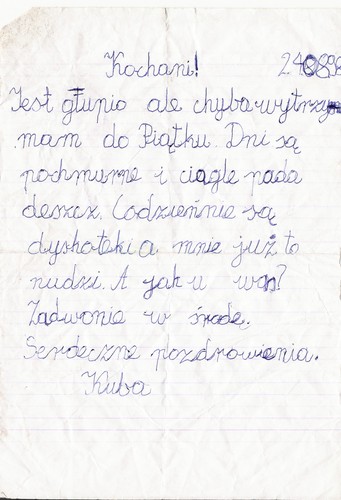 Kochani! 240898
Jest głupio ale chyba wytrzy
mam do Piątku. Dni są
pochmurne i ciągle pada
deszcz. Codzieńnie są
dyskoteki a mnie już to
nudzi. A jak u was?
Zadwonie w środę.
Serdeczne pozdrowienia.
Kuba